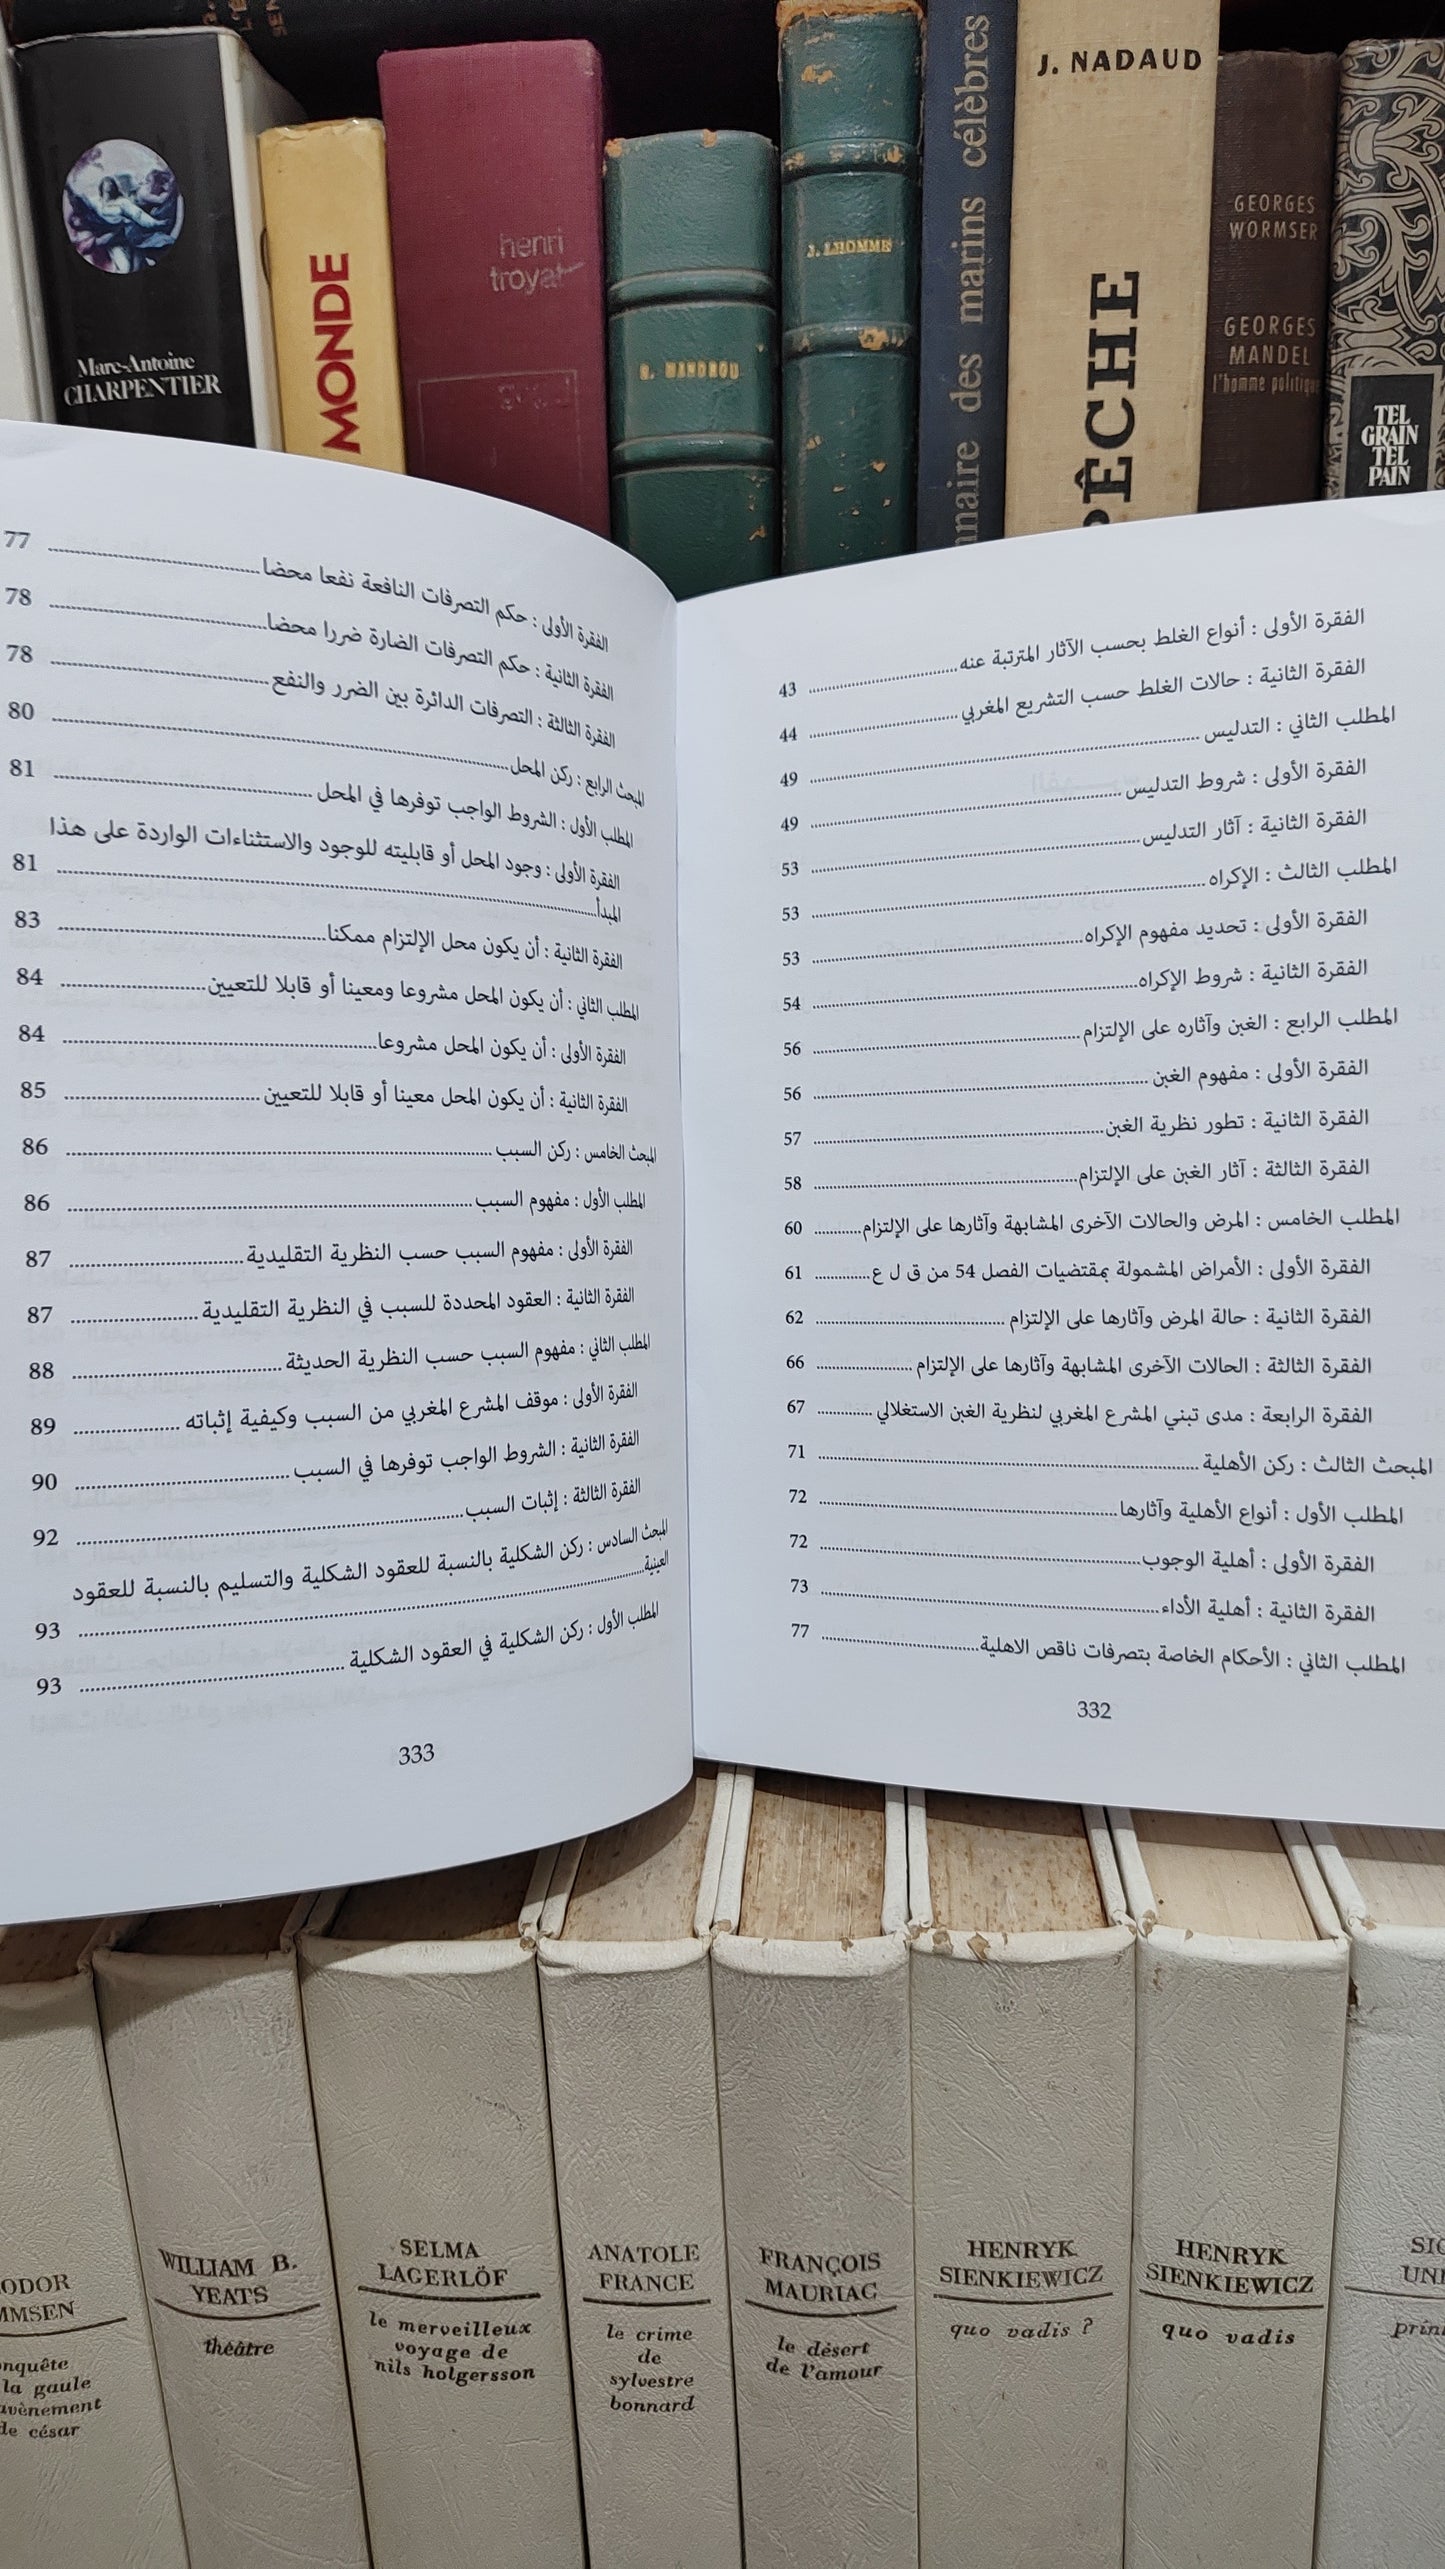 Marc-Antoine
CHARPENTIER
MONDE
henri
troyat
J. LHOMME
marins célèbres
des
J. NADAUD
PÊCHE
GEORGES
WORMSER
GEORGES
MANDEL
l'homme politique
TEL
GRAIN
TEL
PAIN
الفقرة الأولى : أنواع الغلط بحسب الآثار المترتبة عنه 43
الفقرة الثانية : حالات الغلط حسب التشريع المغربي 44
المطلب الثاني : التدليس 49
الفقرة الأولى : شروط التدليس 49
الفقرة الثانية : آثار التدليس 53
المطلب الثالث : الإكراه 53
الفقرة الأولى : تحديد مفهوم الإكراه 53
الفقرة الثانية : شروط الإكراه 54
المطلب الرابع : الغبن وآثاره على الإلتزام 56
الفقرة الأولى : مفهوم الغبن 56
الفقرة الثانية : تطور نظرية الغبن 57
الفقرة الثالثة : آثار الغبن على الإلتزام 58
المطلب الخامس : المرض والحالات الآخرى المشابهة وآثارها على الإلتزام 60
الفقرة الأولى : الأمراض المشمولة بمقتضيات الفصل 54 من ق ل ع 61
الفقرة الثانية : حالة المرض وآثارها على الإلتزام 62
الفقرة الثالثة : الحالات الآخرى المشابهة وآثارها على الإلتزام 66
الفقرة الرابعة : مدى تبني المشرع المغربي لنظرية الغبن الاستغلالي 67
المبحث الثالث : ركن الأهلية 71
المطلب الأول : أنواع الأهلية وآثارها 72
الفقرة الأولى : أهلية الوجوب 72
الفقرة الثانية : أهلية الأداء 73
المطلب الثاني : الأحكام الخاصة بتصرفات ناقص الاهلية 77
332
الفقرة الأولى : حكم التصرفات النافعة نفعا محضا 77
الفقرة الثانية : حكم التصرفات الضارة ضررا محضا 78
الفقرة الثالثة : التصرفات الدائرة بين الضرر والنفع 78
المبحث الرابع : ركن المحل 80
المطلب الأول : الشروط الواجب توفرها في المحل 81
الفقرة الأولى : وجود المحل أو قابليته للوجود والاستثناءات الواردة على هذا
المبدأ 81
الفقرة الثانية : أن يكون محل الإلتزام ممكنا 83
المطلب الثاني : أن يكون المحل مشروعا ومعينا أو قابلا للتعيين 84
الفقرة الأولى : أن يكون المحل مشروعا 84
الفقرة الثانية : أن يكون المحل معينا أو قابلا للتعيين 85
المبحث الخامس : ركن السبب 86
المطلب الأول : مفهوم السبب 86
الفقرة الأولى : مفهوم السبب حسب النظرية التقليدية 87
الفقرة الثانية : العقود المحددة للسبب في النظرية التقليدية 87
المطلب الثاني : مفهوم السبب حسب النظرية الحديثة 88
الفقرة الأولى : موقف المشرع المغربي من السبب وكيفية إثباته 89
الفقرة الثانية : الشروط الواجب توفرها في السبب 90
الفقرة الثالثة : إثبات السبب 92
المبحث السادس : ركن الشكلية بالنسبة للعقود الشكلية والتسليم بالنسبة للعقود
العينية 93
المطلب الأول : ركن الشكلية في العقود الشكلية 93
333
WILLIAM B.
YEATS
théâtre
SELMA
LAGERLÖF
le merveilleux
voyage de
nils holgersson
ANATOLE
FRANCE
le crime
de
sylvestre
bonnard
FRANÇOIS
MAURIAC
le désert
de l'amour
HENRYK
SIENKIEWICZ
quo vadis ?
HENRYK
SIENKIEWICZ
quo vadis
la gaule
de césar